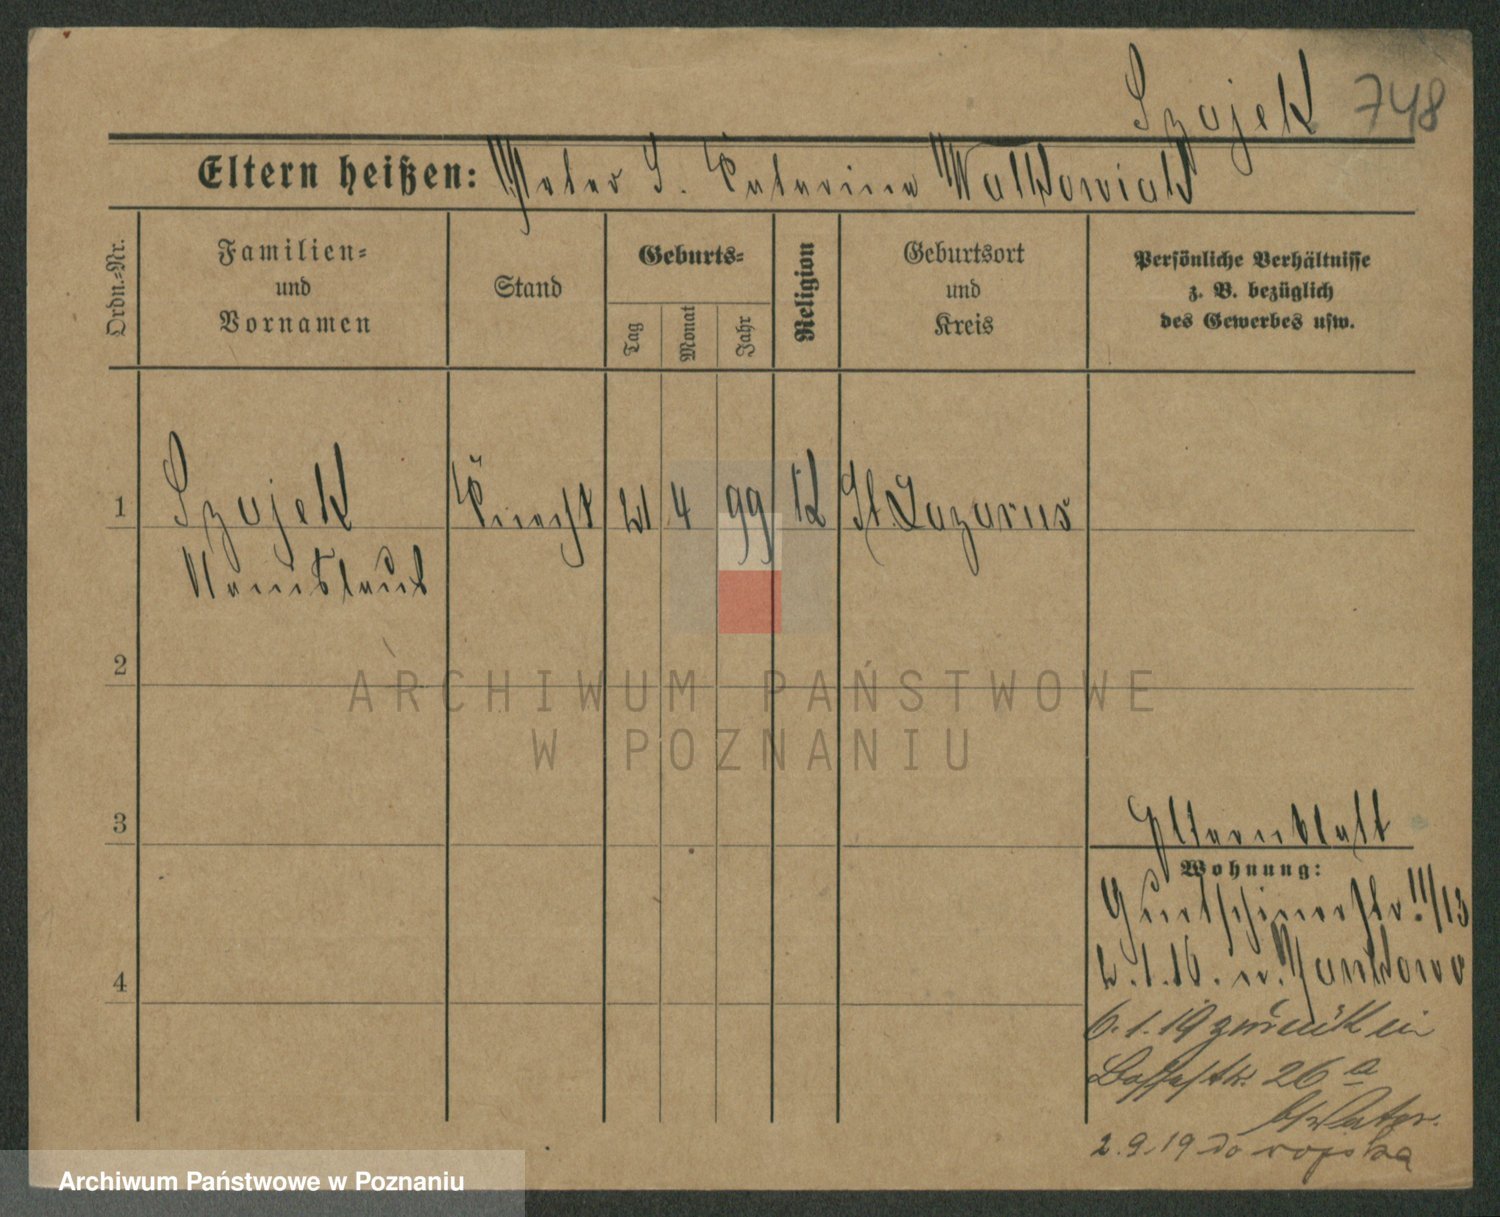 Szajek 748
Eltern heißen: Peter S. Katarina Walkowiak
Ordn.-Nr.
Familien-
und
Vornamen
Stand
Geburts-
Tag
Monat
Jahr
Religion
Geburtsort
und
Kreis
Persönliche Verhältnisse
z. B. bezüglich
des Gewerbes usw.
1 Szajek Knecht 4 99 K St. Lazarus
2
3
4
Elternblatt
Wohnung:
Gurtschinerstr. 11/13
2.1.16. n. Jankowo
6.1.19 zurück in
26 a
b/ Vater.
2.9.19 do wojska
ARCHIWUM PAŃSTWOWE
W POZNANIU
Archiwum Państwowe w Poznaniu